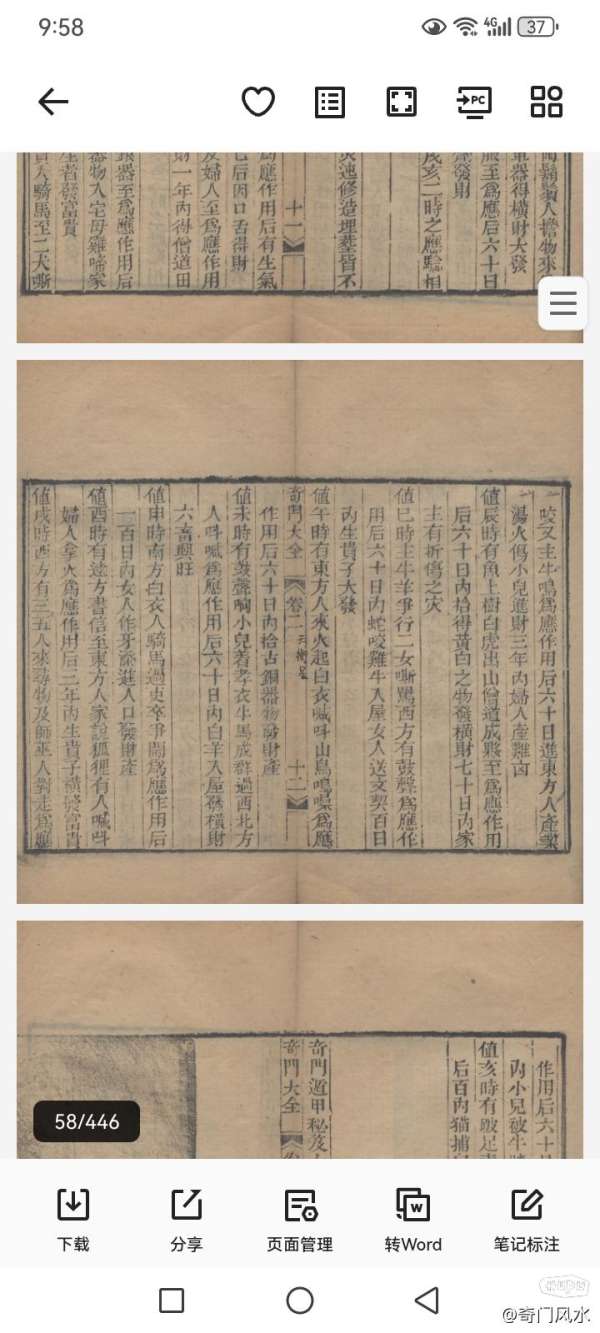 9:58
4G
37
PC
鬚人擔物來
軍器得橫財大發
服至為應后六十日
產發財
戌亥二時之應驗相
災速修造埋葬皆不
十一
為應作用后有生氣
已后因口舌得財
及婦人至為應作用
財一年內得僧道田
銀器至為應作用后
器物入宅母雞啼家
生者發富貴
貴人騎馬至二犬嘶
咬又主牛鳴為應作用后六十日進東方人產業
湯火傷小兒進財三年內婦人產難凶
值辰時有魚上樹白虎出山僧道成夥至為應作用
后六十日內拾得黃白之物發橫財七十日內家
主有折傷之灾
值巳時主牛羊爭行二女嘶罵西方有鼓聲為應作
用后六十日內蛇咬雞牛入屋女人送文契百日
內生貴子大發
值午時有東方人來火起白衣喊呌山鳥鳴噪為應
奇門大全
卷二
天衝星
十二
作用后六十日內拾古銅器物發財產
值未時有鼓聲响小兒著孝衣牛馬成群過西北方
人呌喊為應作用后六十日內白羊入屋發橫財
六畜興旺
值申時南方白衣人騎馬過吏卒爭鬪為應作用后
一百日內女人作牙添進人口發財產
值酉時有遠方書信至東方人家說狐狸有人喊呌
婦人拿火為應作用后二年內生貴子橫發富貴
值戌時西方有三五人來尋物及師巫人對走為應
作用后六十日
內小兒破牛
值亥時有跛足
后百內猫捕
奇門遁甲秘笈
奇門大全
58/446
下载
分享
页面管理
W
转Word
笔记标注
@奇门风水